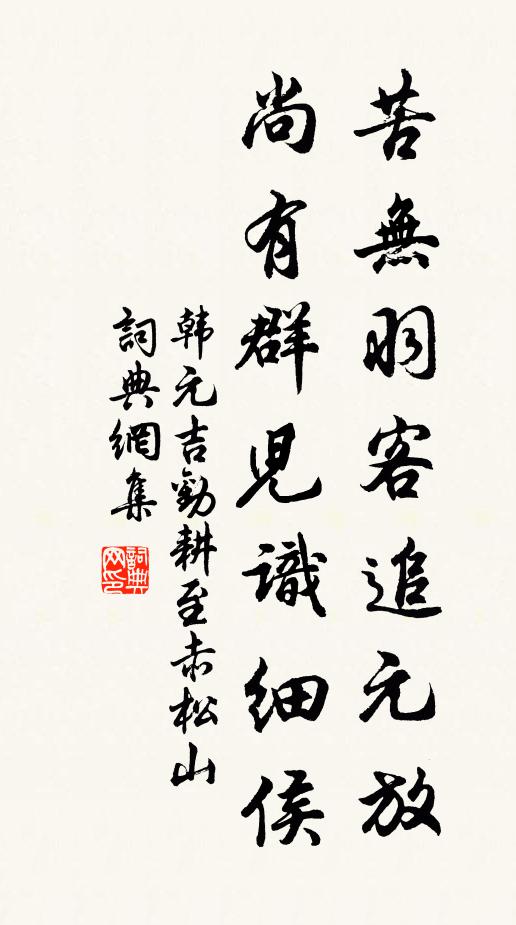 苦無羽客追元放
尚有群兒識細侯
韩元吉勸耕至赤松山
詞典網集
詞典网印